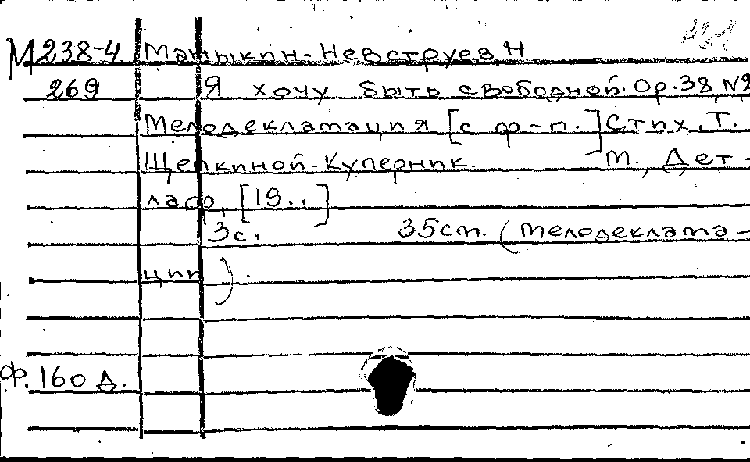 М238-4 Маныкин-Невструев, Н
269 Я хочу быть свободной. Ор.38, №2
Мелодекламация [с ф-п.] Стих. Т.
Щепкиной-Куперник. М., Дет-
ласф, [19..]
3с. 35см. (Мелодеклама-
ции).
Ф. 160 д.